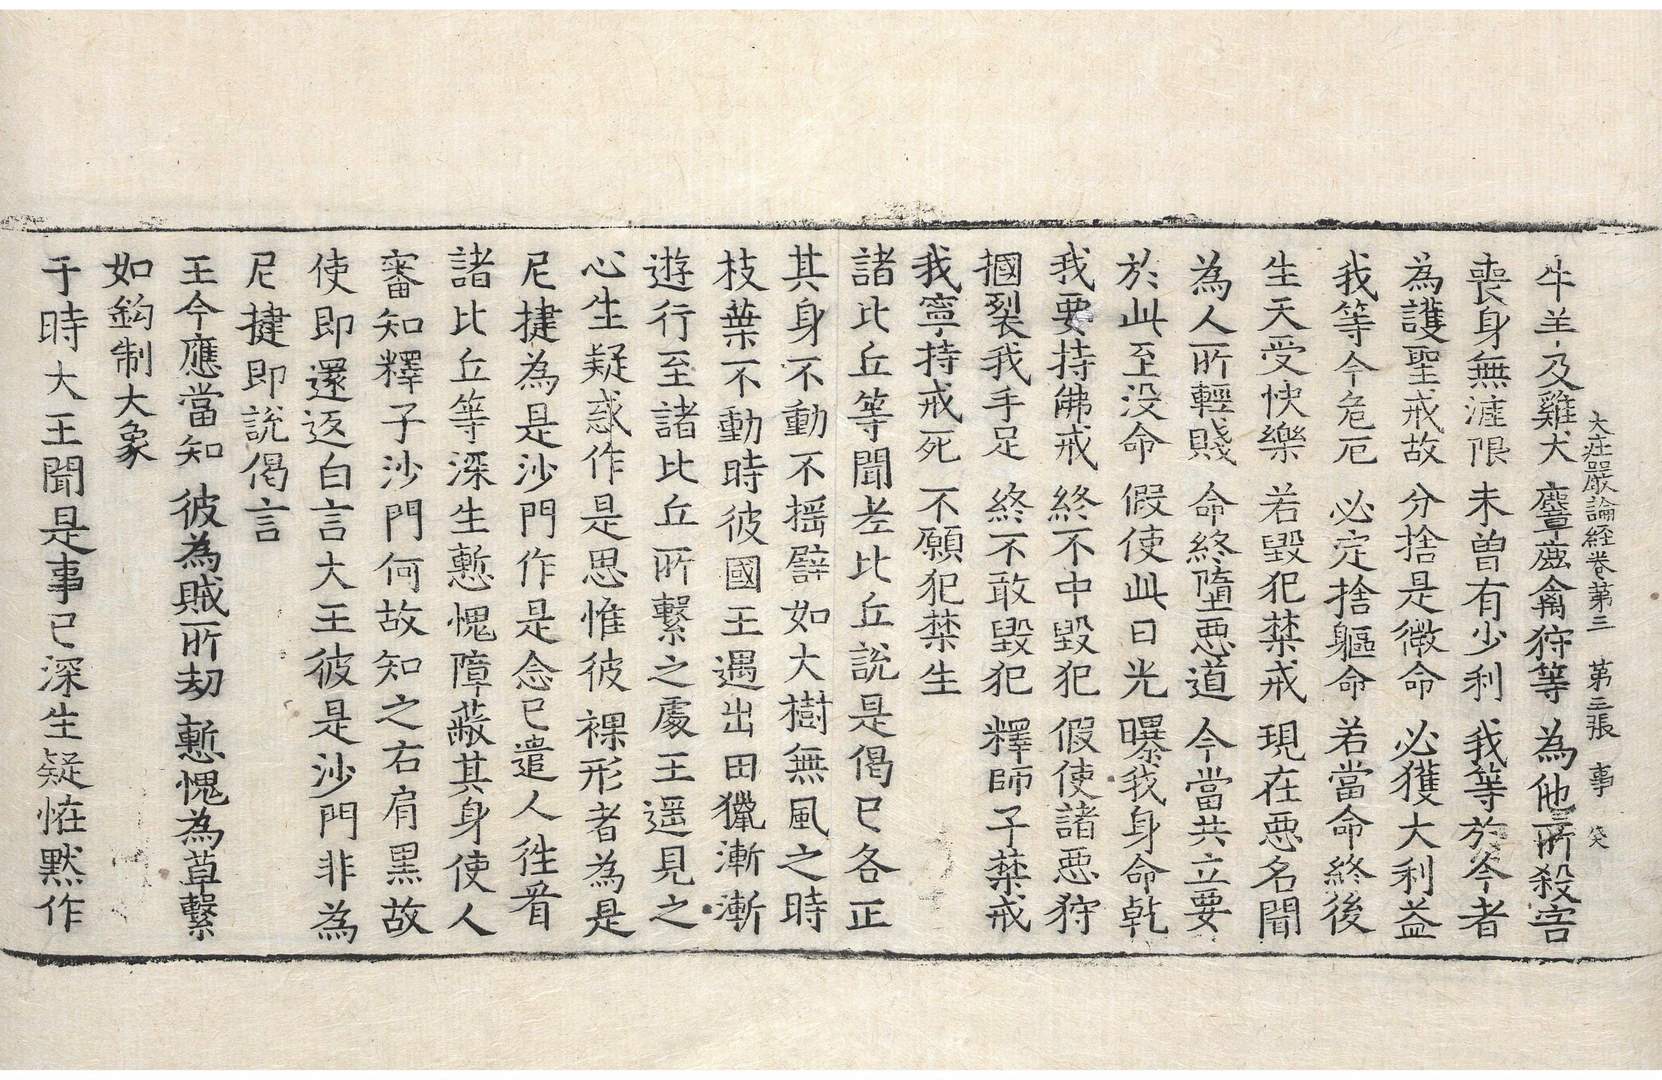 大莊嚴論経卷苐三　苐三張　事　㳄
牛羊及雞犬　麞鹿禽狩等　為他所殺害
喪身無涯限　未曾有少利　我等於今者
為護聖戒故　分捨是微命　必獲大利益
我等今危厄　必定捨軀命　若當命終後
生天受快樂　若毀犯禁戒　現在惡名聞
為人所輕賤　命終墮惡道　今當共立要
於此至没命　假使此日光　曝我身命乾
我要持佛戒　終不中毀犯　假使諸惡狩
摑裂我手足　終不敢毀犯　釋師子禁戒
我寧持戒死　不願犯禁生
諸比丘等聞老比丘說是偈已各正
其身不動不揺譬如大樹無風之時
枝葉不動時彼國王遇出田獵漸漸
遊行至諸比丘所繫之處王遥見之
心生疑惑作是思惟彼裸形者為是
尼揵為是沙門作是念已遣人徃看
諸比丘等深生慙愧障蔽其身使人
審知釋子沙門何故知之右肩黑故
使即還返白言大王彼是沙門非為
尼揵即說偈言
王今應當知　彼為賊所劫　慙愧為草繫
如鈎制大象
于時大王聞是事已深生疑恠默作